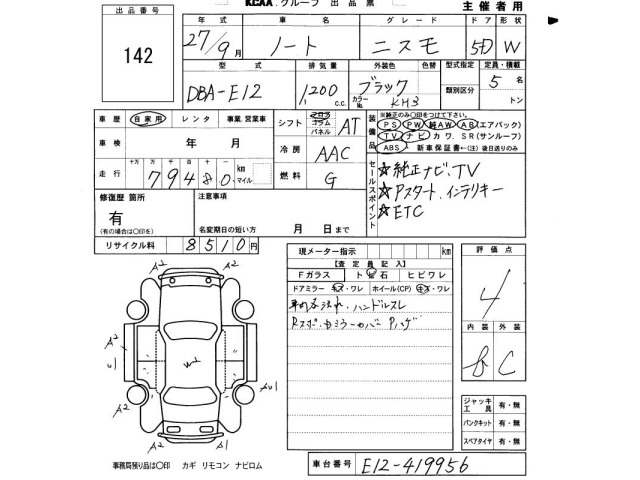 KCAA.グループ 出品票
主催者用
出品番号
142
年式 車名 グレード ドア 形状
27/9月 ノート ニスモ 5D W
型式 排気量 外装色 色替 型式指定 定員・積載
DBA-E12 1200 c.c. ブラック カラーNo. KH3 類別区分 5名 トン
車歴 自家用 レンタ 事業.営業車
シフト フロア コラム パネル AT
装備品 ※純正のみ○印をつけて下さい。
PS PW 純AW AB(エアバック)
TV ナビ カワ.SR(サンルーフ)
ABS 新車保証書←(注)後日送りのみ
車検 年 月
冷房 AAC
走行 十万 万 千 百 十 一
79480 km マイル
燃料 G
セールスポイント
☆純正ナビ、TV
☆Pスタート、インテリキー
☆ETC
修復歴 箇所
有
(有の場合は○印を)
注意事項
名変期日の短い方 月 日まで
リサイクル料 8510円
現メーター指示 km
【査定員記入】
Fガラス ト 石 ヒビワレ
ドアミラー キズ・ワレ ホイール(CP) キズ・ワレ
車内 汚れ、ハンドルスレ
評価点
4
内装 外装
B C
A2
A2
A2
U1
W2
AU1
A2
A2
ジャッキ 工具 有・無
パンクキット 有・無
スペアタイヤ 有・無
事務局残り品は○印 カギ リモコン ナビロム
車台番号 E12-419956